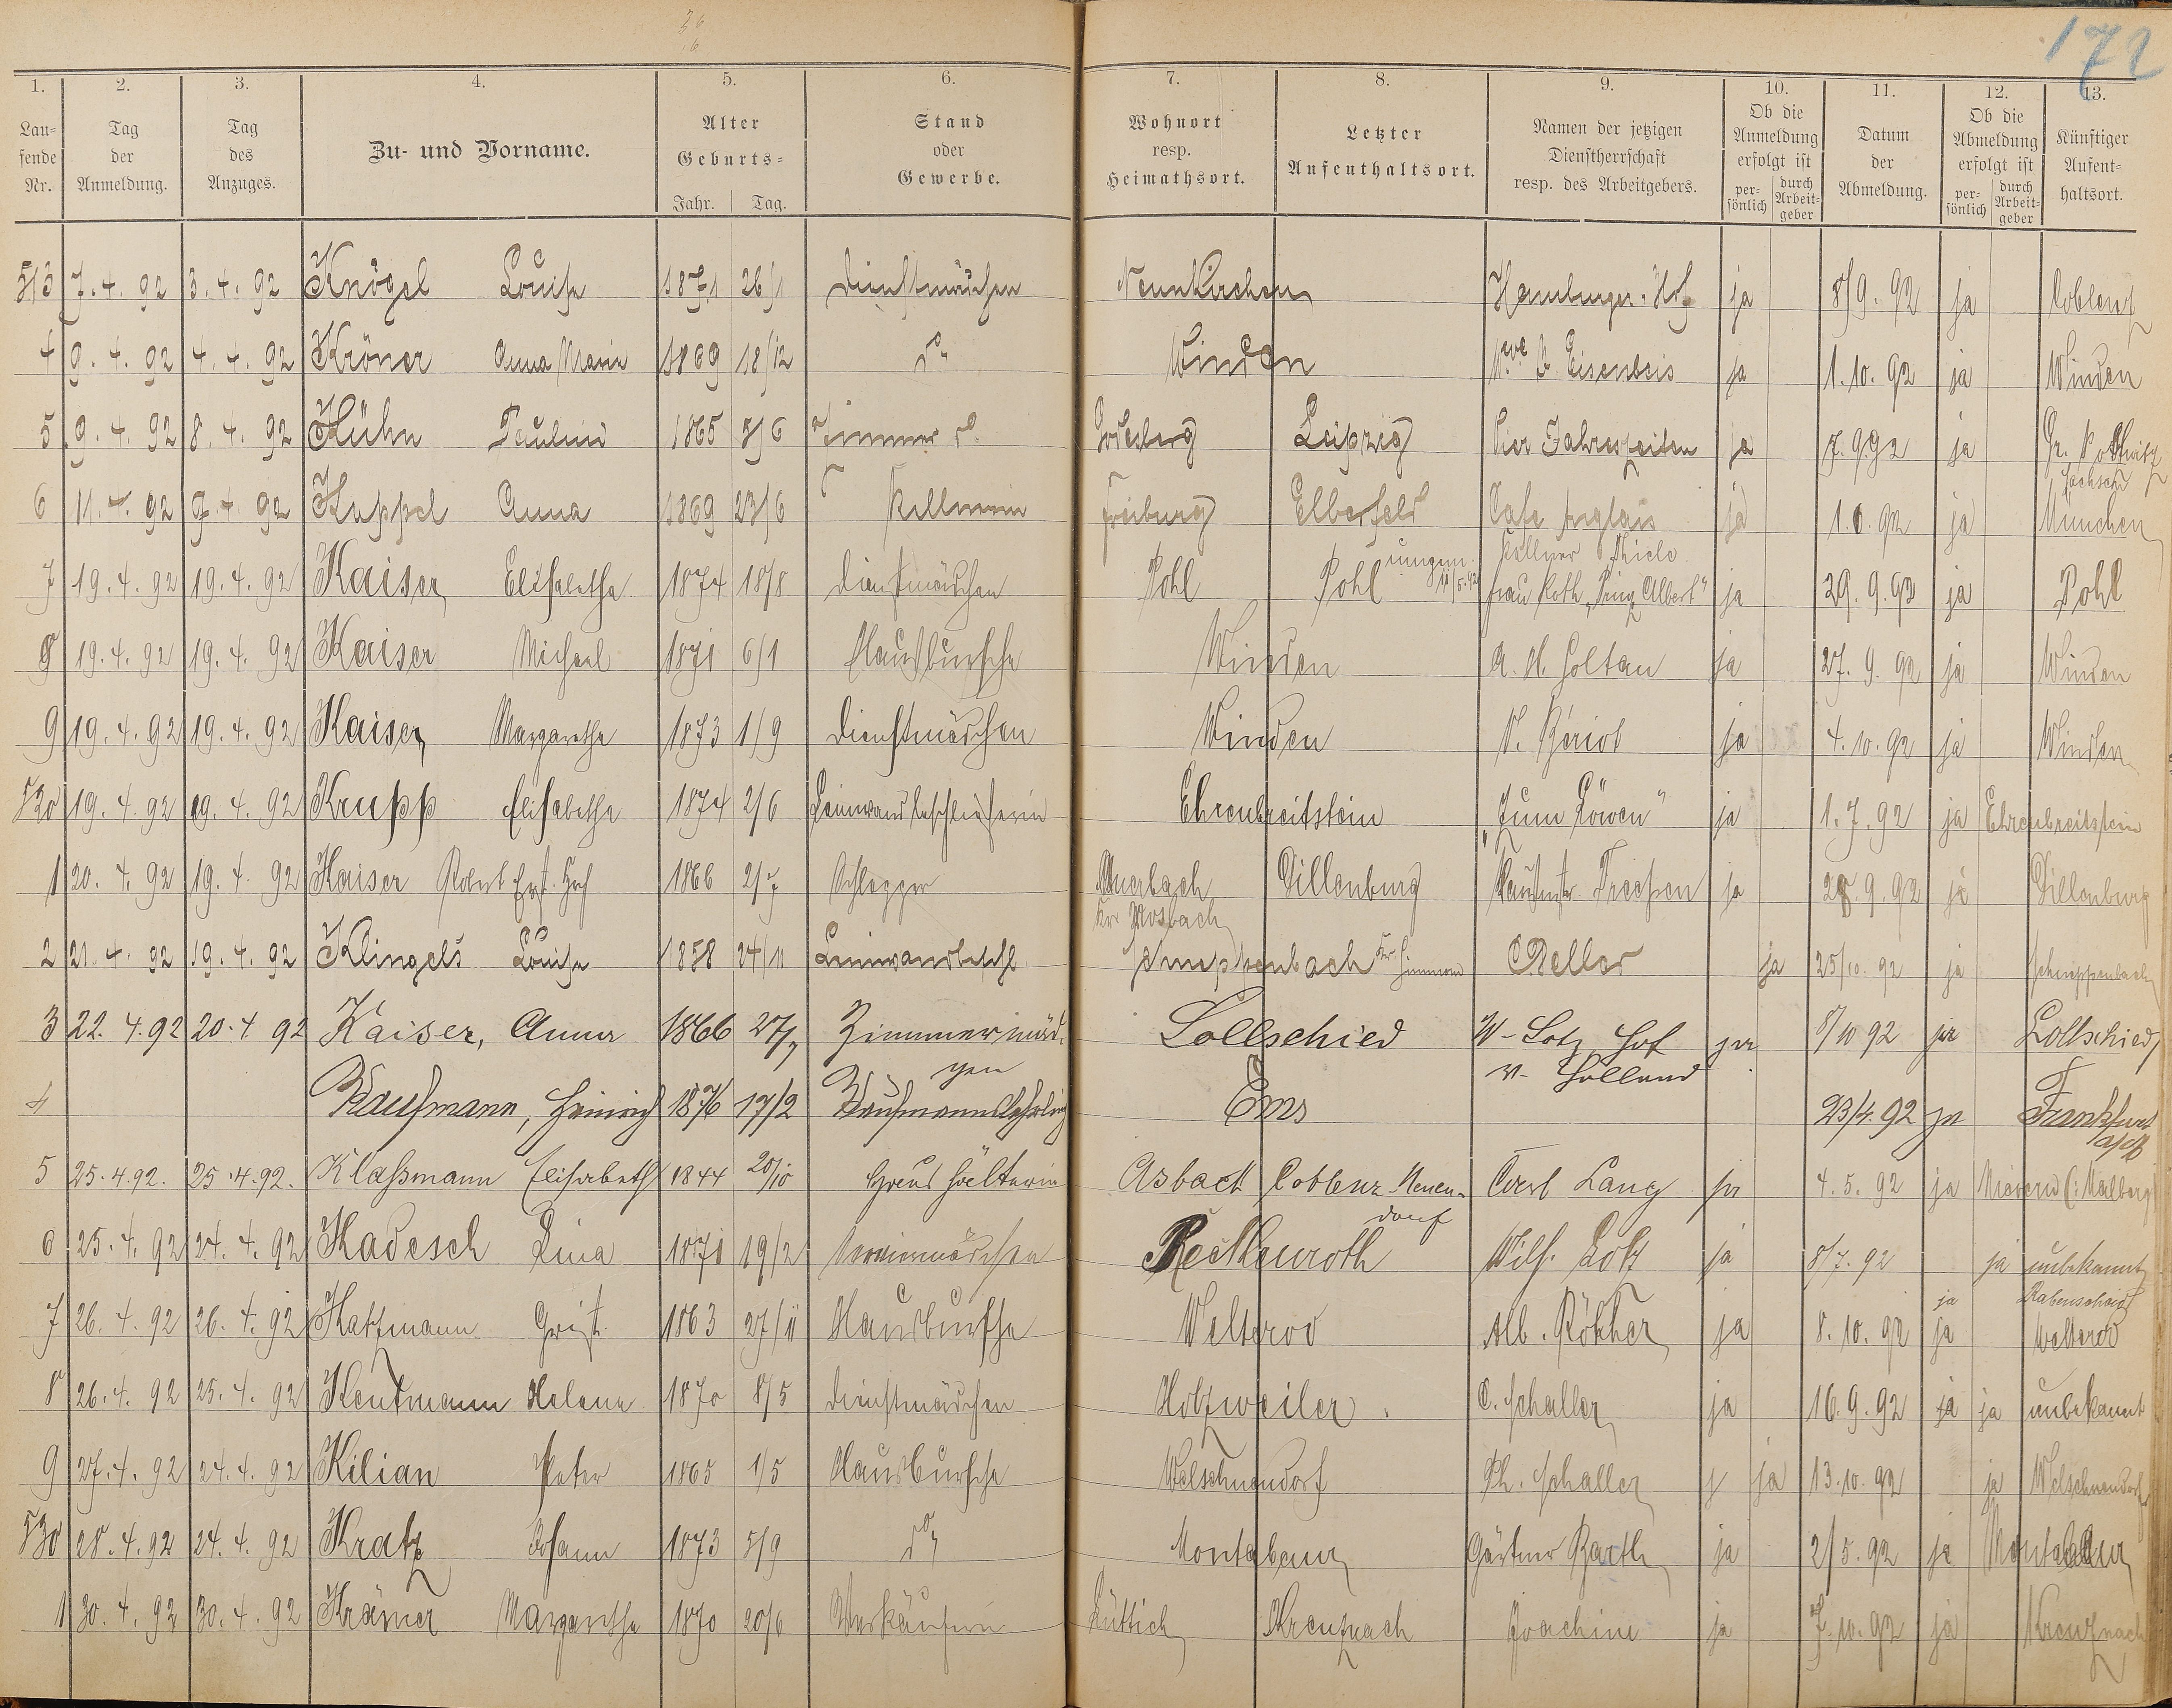 172
1. 2. 3. 4. 5. 6. 7. 8. 9. 10. 11. 12. 13.
Lau=
fende
Nr.
Tag
der
Anmeldung.
Tag
des
Anzuges.
Zu- und Vorname.
Alter
Geburts=
Jahr. Tag.
Stand
oder
Gewerbe.
Wohnort
resp.
Heimathsort.
Letzter
Aufenthaltsort.
Namen der jetzigen
Dienstherrschaft
resp. des Arbeitgebers.
Ob die
Anmeldung
erfolgt ist
per=
sönlich
durch
Arbeit=
geber
Datum
der
Abmeldung.
Ob die
Abmeldung
erfolgt ist
per=
sönlich
durch
Arbeit=
geber
Künftiger
Aufent=
haltsort.
513 7.4.92 3.4.92 Knögel Louise 1871 26/1 Dienstmädchen Neunkirchen Hamburger Hof ja 8/9.92 ja Coblenz
4 9.4.92 4.4.92 Kröner Anna Marie 1869 18/12 do Winden Wwe Eisenbeis ja 1.10.92 ja Winden
5 9.4.92 8.4.92 Kühn Pauline 1865 5/6 Zimmer d. Godesberg Leipzig Vier Jahreszeiten ja 7.9.92 ja Gr.
Sachsen
6 11.4.92 9.4.92 Kappel Anna 1869 23/6 Kellnerin Freiburg Elberfeld Cafe Anglais ja 92 ja München
Thiele
7 19.4.92 19.4.92 Kaiser Elisabetha 1874 18/8 Dienstmädchen Pohl Pohl 11/5.92 Frau Roth „Prinz Albert" ja 29.9.92 ja Pohl
8 19.4.92 19.4.92 Kaiser Michael 1871 6/1 Hausbursche Winden A. H. Soltau ja 27.9.92 ja Winden
9 19.4.92 19.4.92 Kaiser Margarethe 1873 1/9 Dienstmädchen Winden ja 4.10.92 ja Winden
520 19.4.92 19.4.92 Krupp Elisabetha 1874 2/6 Leinwandbeschließerin Ehrenbreitstein „Zum Löwen" ja 1.7.92 ja Ehrenbreitstein
1 20.4.92 19.4.92 Kaiser Robert 1866 2/7 Auerbach Dillenburg ja 28.9.92 ja Dillenburg
Kr. Mosbach
2 21.4.92 19.4.92 Klingels Louise 1858 24/11 Leinwandbeschl Schneppenbach Kr. Simmern ja 25/10.92 ja Schneppenbach
3 22.4.92 20.4 92 Kaiser, Anna 1866 27/7 Zimmermäd=
chen
Lollschied W. Lotz Hof
v. Holland
ja 8/10 92 ja Lollschied
4 Kaufmann, Heinrich 1876 17/2 Kaufmannslehrling Ems 23/4.92 ja Frankfurt
a/M
5 25.4.92. 25.4.92. Klaßmann Elisabeth 1844 20/10 Haushälterin Asbach Coblenz Neuen-
dorf
Carl Lang ja 4.5.92 ja
6 25.4.92 24.4.92 Kadesch Lina 1871 19/2 Serviermädchen Reckenroth Wilh. Lotz ja 8/7.92 ja unbekannt
ja Rabenscheid
7 26.4.92 26.4.92 Katzmann Christ. 1863 27/11 Hausbursche Welterod Alb. Röther ja 8.10.92 ja Welterod
8 26.4.92 25.4.92 Kentmann Helene 1870 8/5 Dienstmädchen Holzweiler C. Schaller ja 16.9.92 ja ja unbekannt
9 27.4.92 24.4.92 Kilian Peter 1865 1/5 Hausbursche Welschneudorf Ph. Schaller j ja 13.10.92 ja Welschneudorf
530 28.4.92 24.4.92 Kratz Johann 1873 5/9 do Montabaur Gärtner Barth ja 2/5.92 ja Montabaur
1 30.4.92 30.4.92 Krämer Margarethe 1870 20/6 Verkäuferin Lüttich Kreuznach Joachim ja 7.10.92 ja Kreuznach